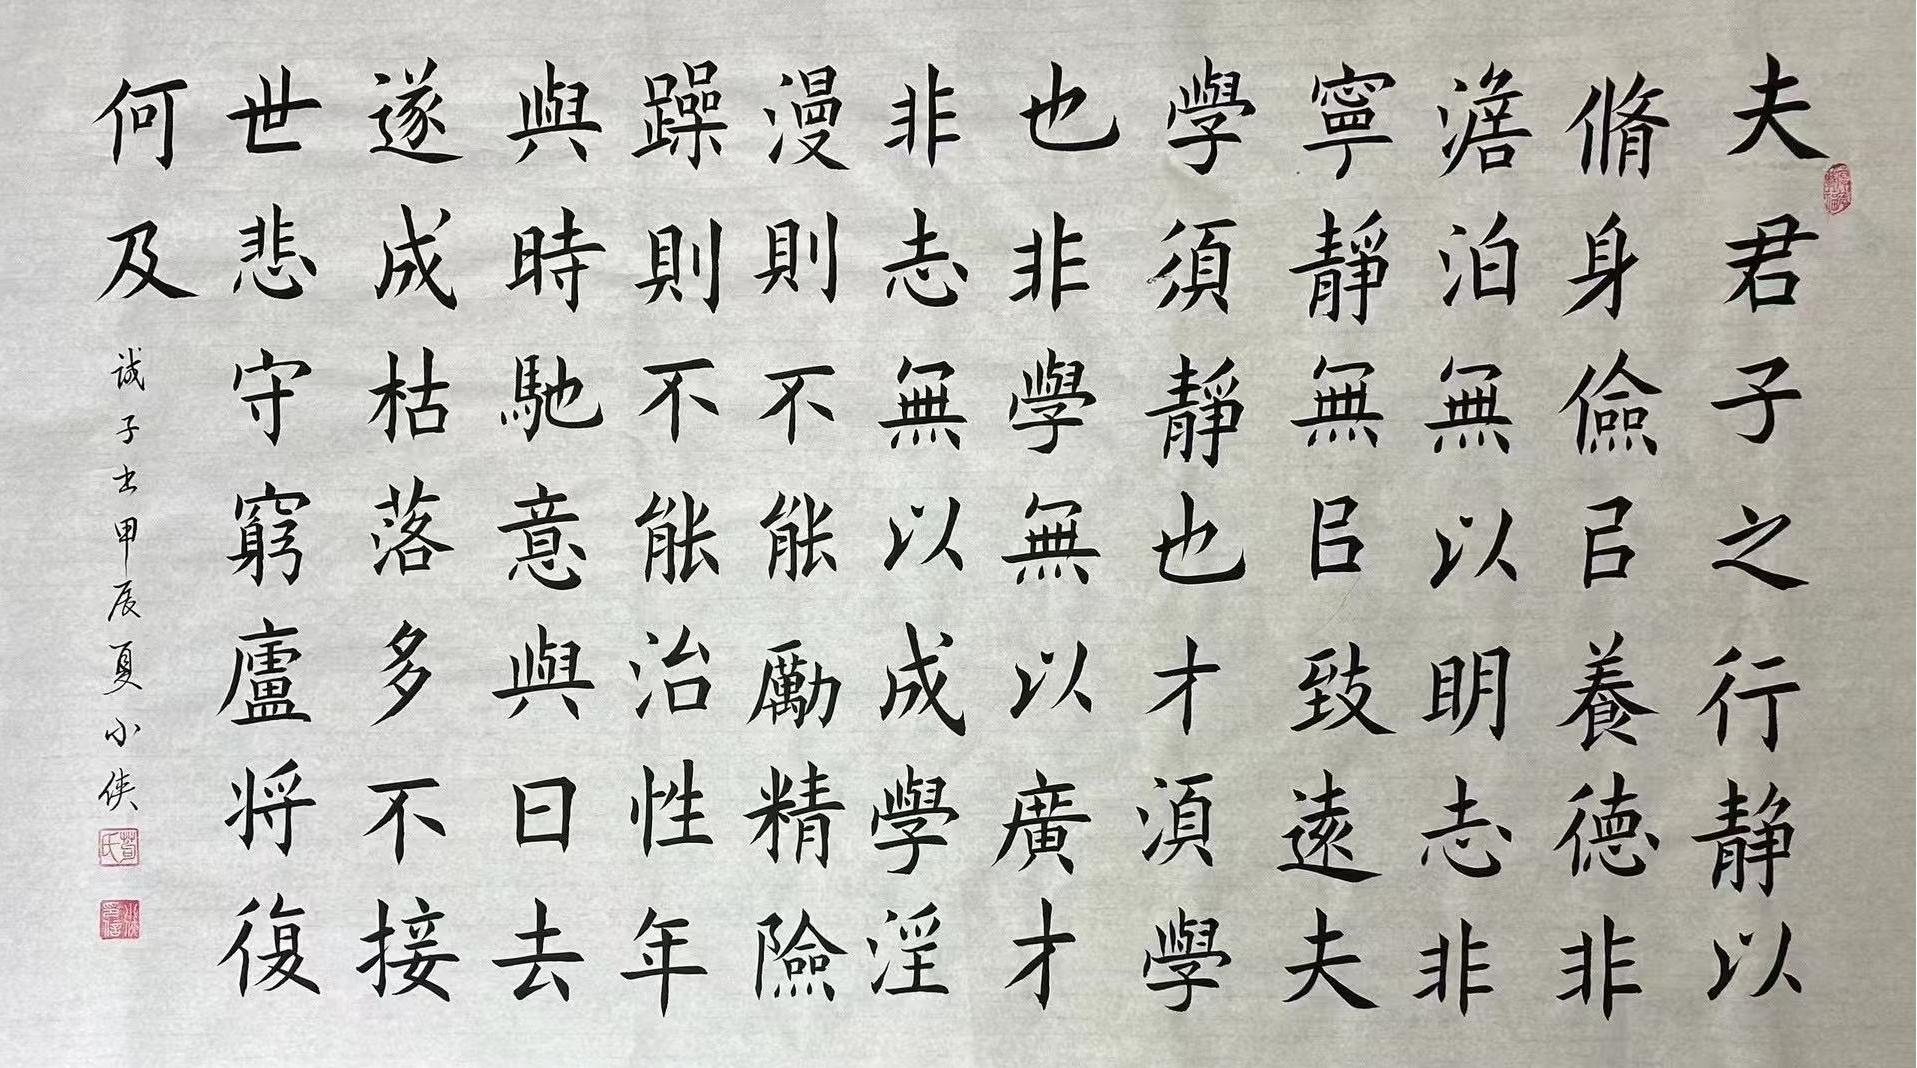 夫君子之行静以
脩身儉㠯養德非
澹泊無以明志非
寧靜無㠯致遠夫
學須靜也才湏學
也非學無以廣才
非志無以成學淫
漫則不能勵精險
躁則不能治性年
與時馳意與日去
遂成枯落多不接
世悲守窮廬将復
何及
诫子书甲辰夏小侠